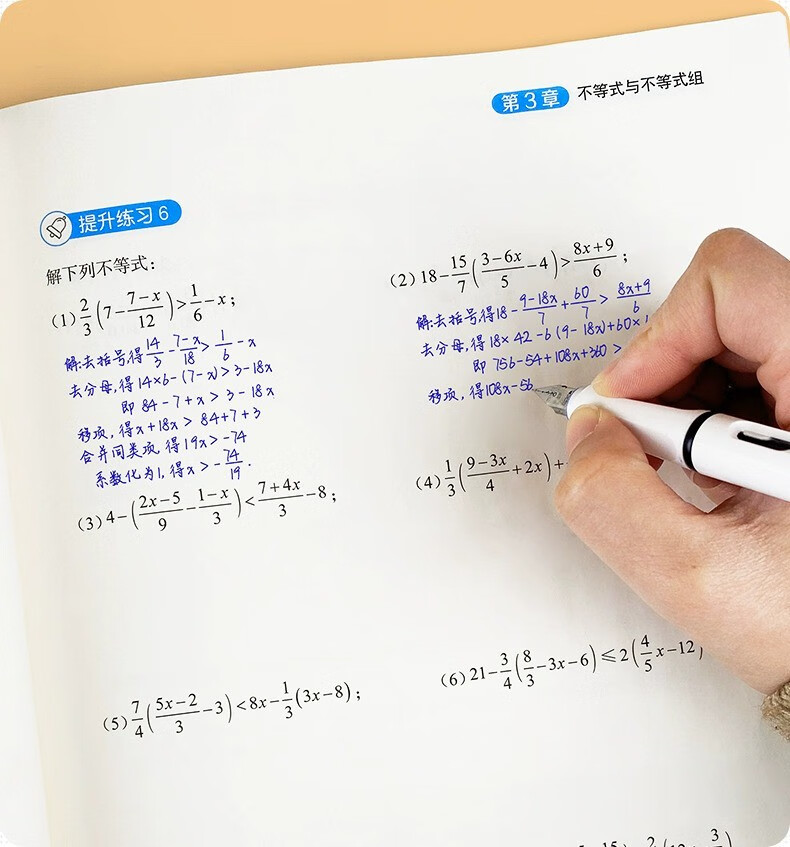 第3章 不等式与不等式组
提升练习6
解下列不等式:
(1) 2/3(7-(7-x)/12)>1/6-x;
解:去括号,得14/3-(7-x)/18>1/6-x
去分母,得14×6-(7-x)>3-18x
即 84-7+x>3-18x
移项,得x+18x>84+7+3
合并同类项,得19x>-74
系数化为1,得x>-74/19.
(2) 18-15/7((3-6x)/5-4)>(8x+9)/6;
解:去括号,得18-(9-18x)/7+60/7>(8x+9)/6
去分母,得18×42-6(9-18x)+60×
即 756-54+108x+360>
移项,得108x-56
(3) 4-((2x-5)/9-(1-x)/3)<(7+4x)/3-8;
(4) 1/3((9-3x)/4+2x)+
(5) 7/4((5x-2)/3-3)<8x-1/3(3x-8);
(6) 21-3/4(8/3-3x-6)≤2(4/5x-12)